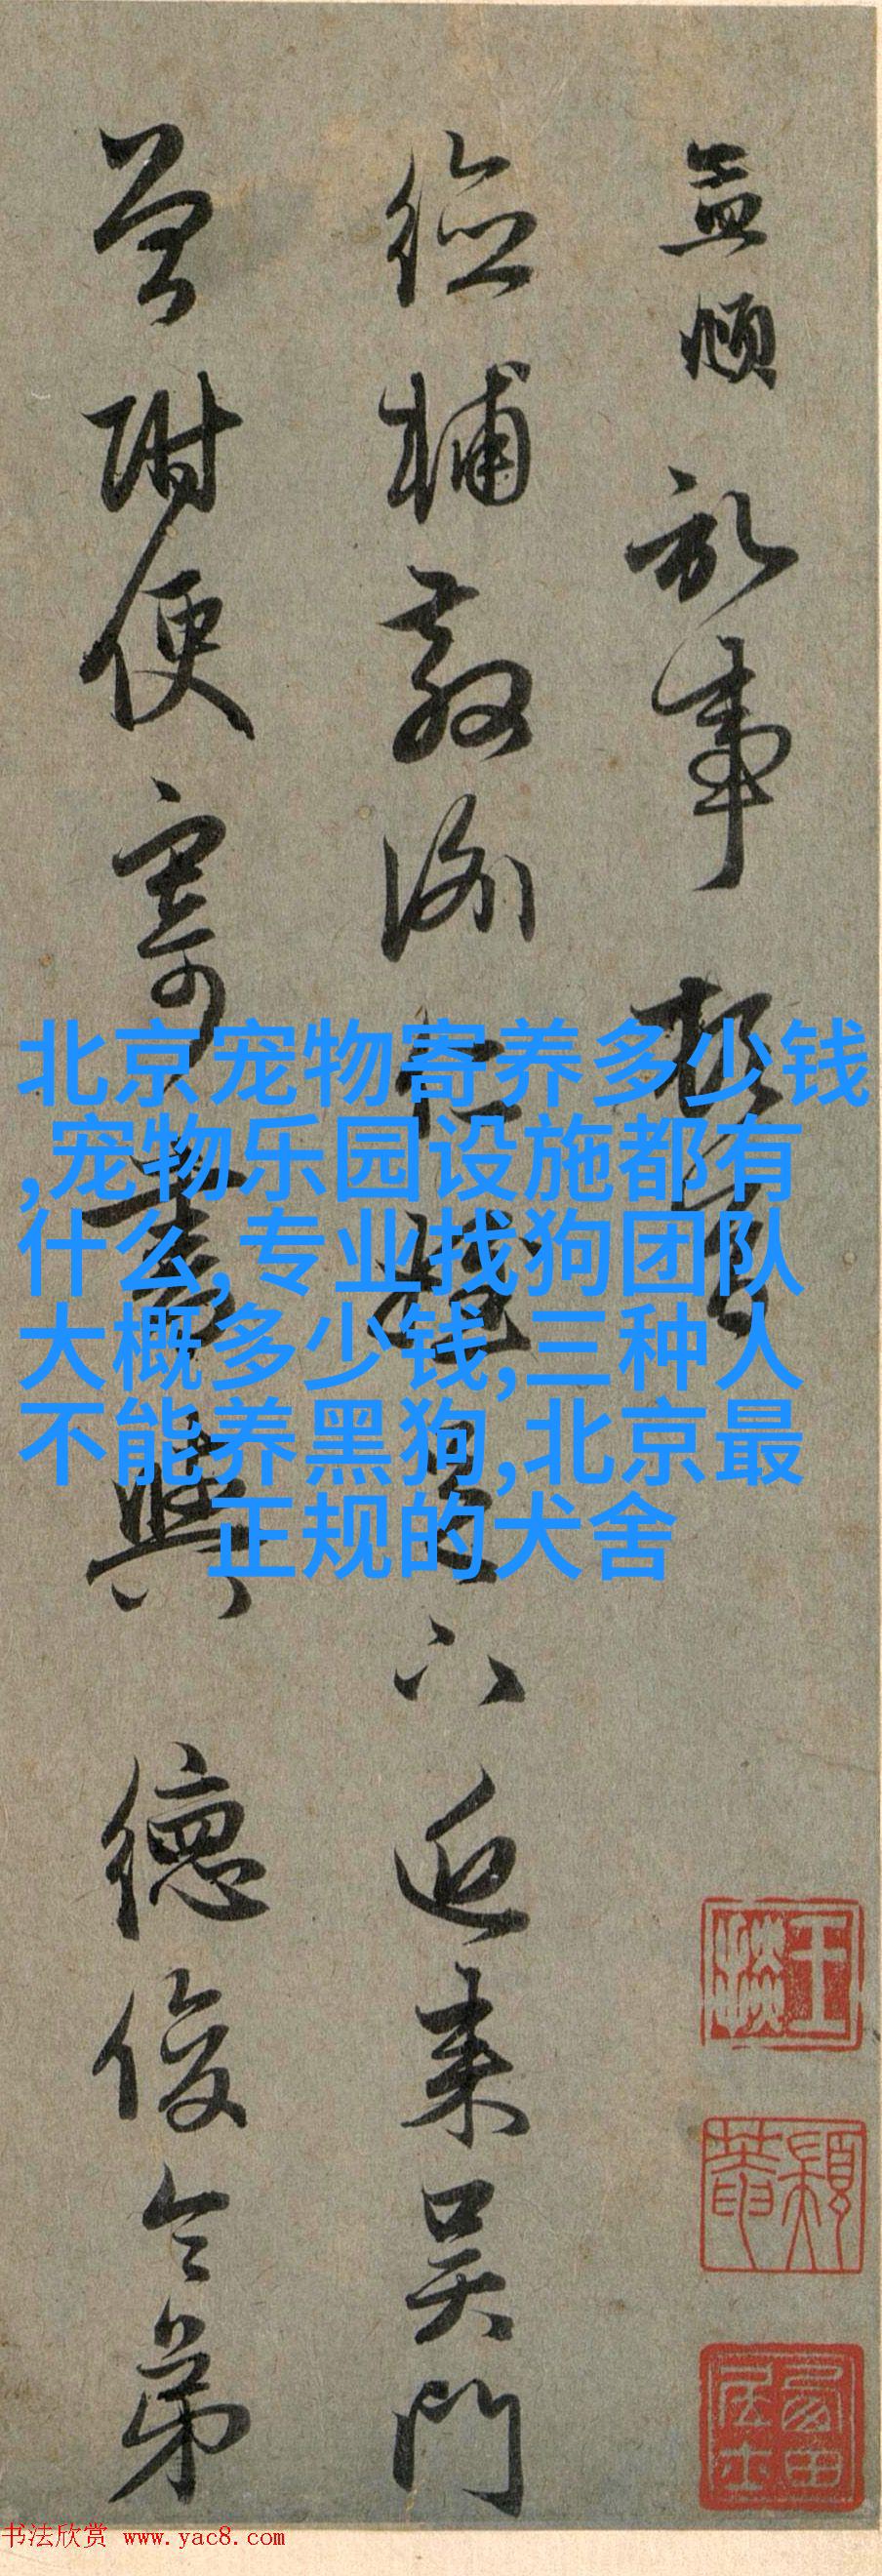 益顺于事 顿首
德辅教谕仁契足下近来吴门
曾附便寄书与 德俊令弟
北京宠物寄养多少钱
,宠物乐园设施都有
什么,专业找狗团队
大概多少钱,三种人
不能养黑狗,北京最
正规的犬舍
书法欣赏 www.yac8.com